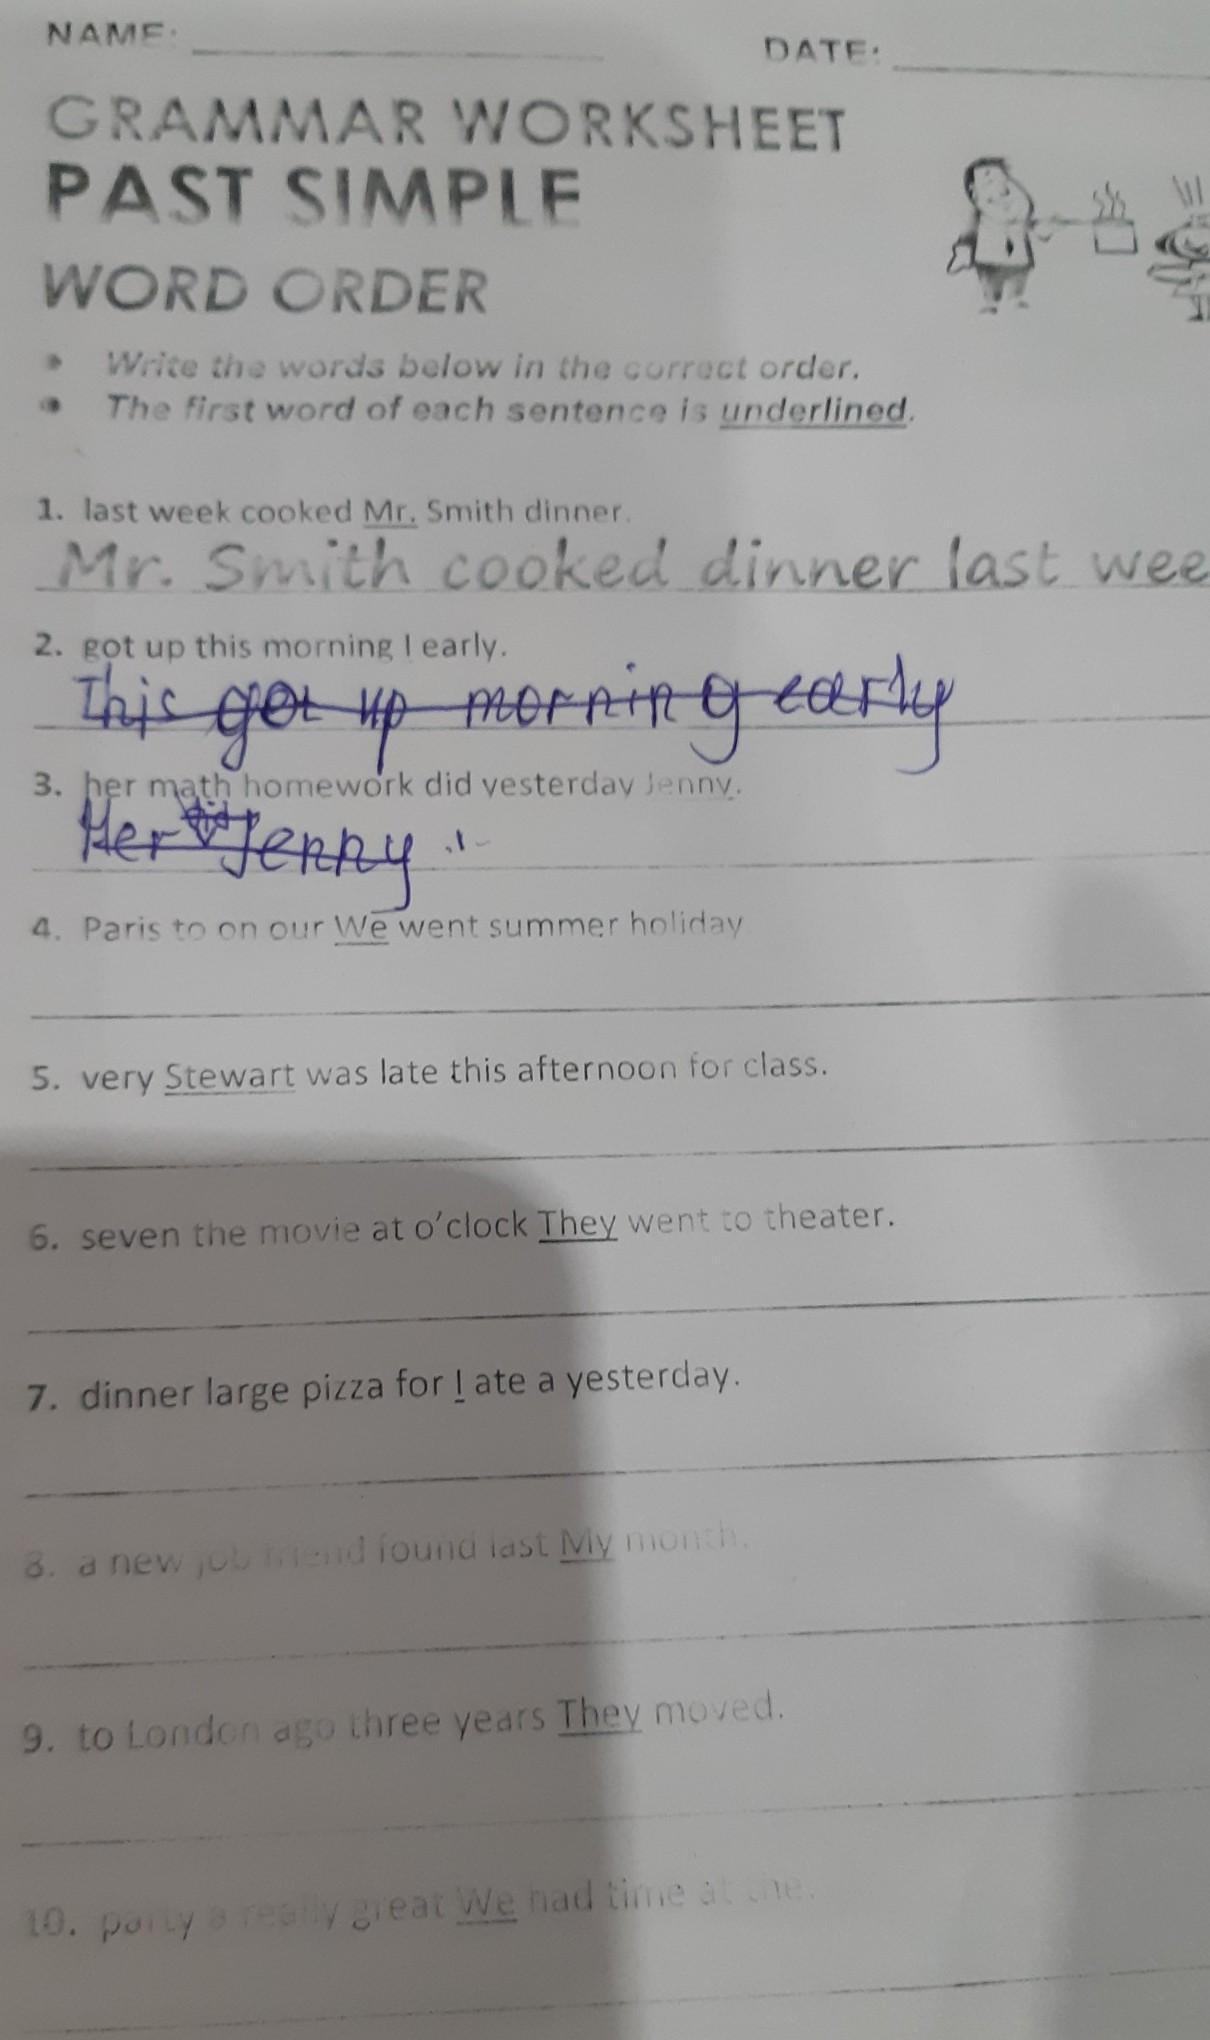 NAME:
DATE:
GRAMMAR WORKSHEET
PAST SIMPLE
WORD ORDER
• Write the words below in the correct order.
• The first word of each sentence is underlined.
1. last week cooked Mr. Smith dinner.
Mr. Smith cooked dinner last wee
2. got up this morning I early.
This got up morning early
3. her math homework did yesterday Jenny.
Her did Jenny
4. Paris to on our We went summer holiday
5. very Stewart was late this afternoon for class.
6. seven the movie at o'clock They went to theater.
7. dinner large pizza for I ate a yesterday.
8. a new job friend found last My month.
9. to London ago three years They moved.
10. party a really great We had time at the.